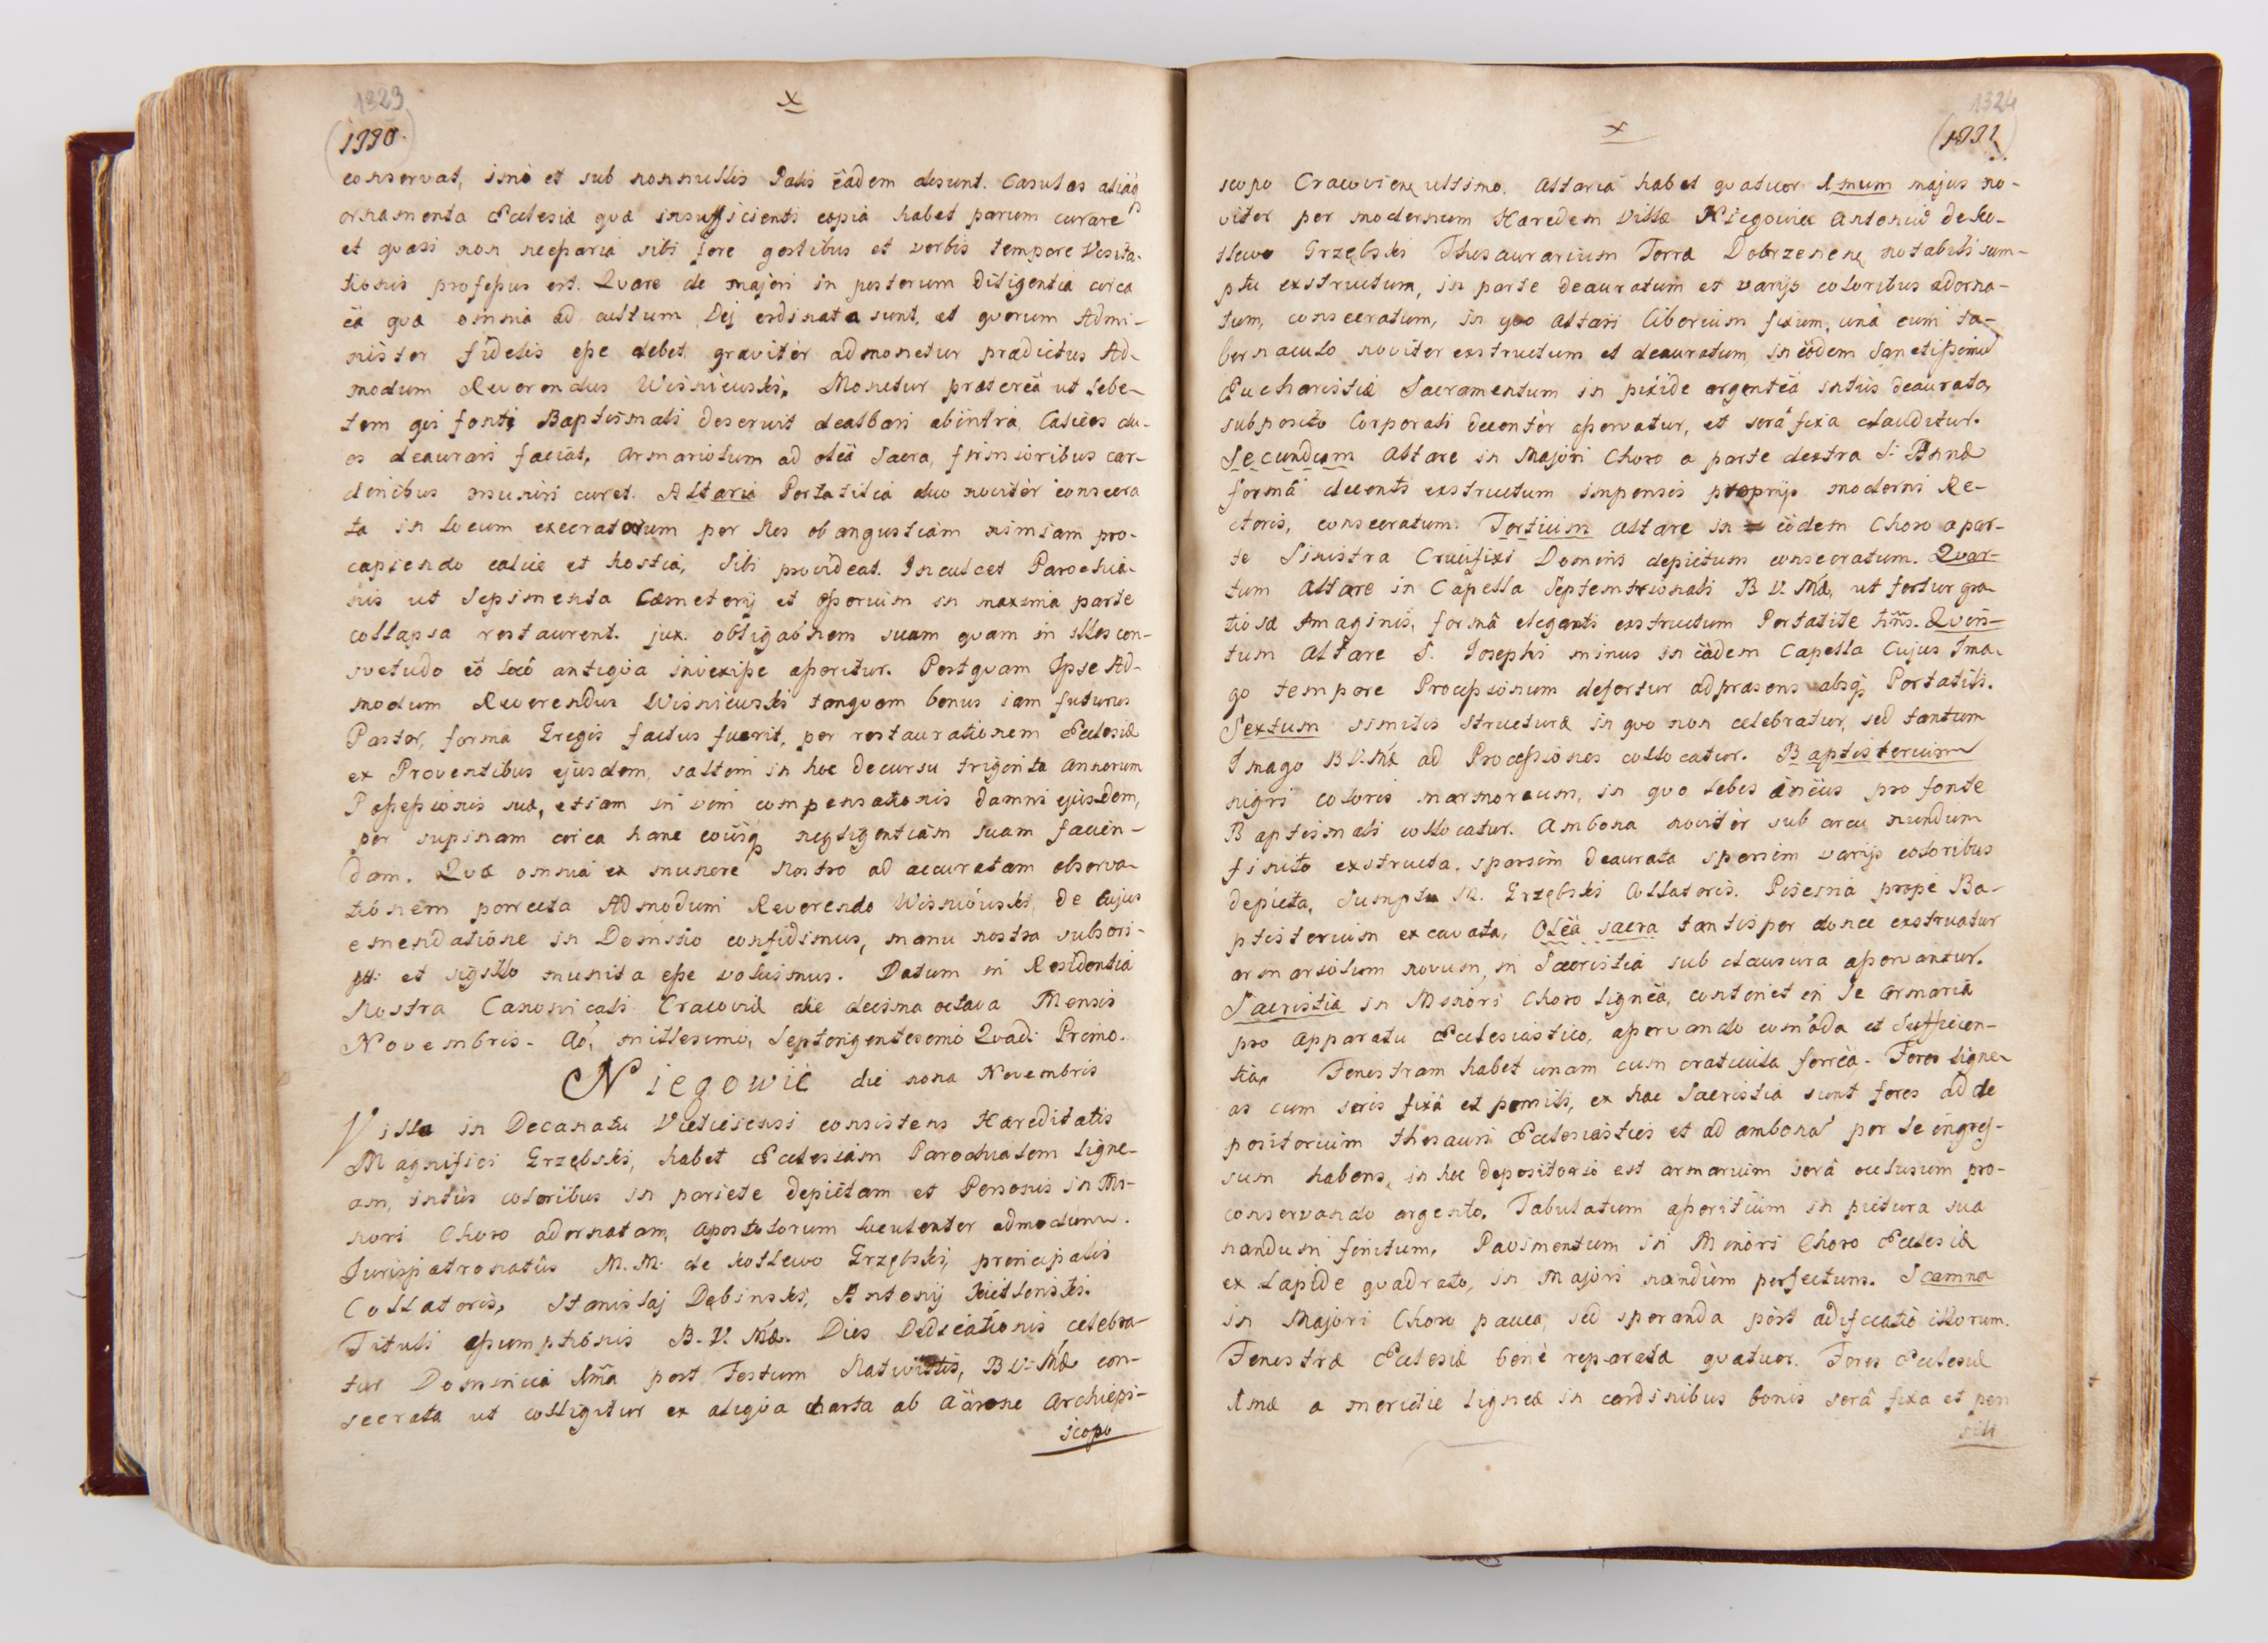 1323
x
1990.
conservat, imò et sub nonnullis Palis eadem desunt. Casulas aliaq
ornamenta Ecclesiæ quæ insufficienti copia habet parum curare
et quasi non necessaria sibi fore gestibus et verbis tempore Visita-
tionis professus est. Quare de majori in posterum diligentia circa
ea quæ omnia ad cultum Dej ordinata sunt, et quorum Admi-
nister fidelis esse debet, graviter admonetur prædictus Ad-
modum Reverendus Wisniewski. Monetur præterea ut Lebe-
tem qui fonti Baptismali deservit dealbari abintra, Calices du-
os deaurari faciat, armariolum ad olea Sacra, firmioribus car-
dinibus muniri curet. Altaria Portatilia duo novitèr consecra
ta in locum execratorum per Nos ob angustiam nimiam pro-
capiendo calice et hostia, Sibi provideat. Inculcet Parochia-
nis ut Sepimenta Cæmeterij et Ossorium in maxima parte
collapsa restaurent. jux. obligaõnem suam quam in illos con-
svetudo eo loco antiqua invexisse asseritur. Postquam Ipse Ad-
modum Reverendus Wisniewski tanquam bonus iam futurus
Pastor, forma Gregis factus fuerit, per restaurationem Ecclesiæ
ex Proventibus ejusdem, saltem in hoc decursu triginta annorum
Possessionis suæ, etiam in vim compensationis damni ejusdem,
per supinam circa hanc eousq negligentiam suam facien-
dam. Quæ omnia ex munere Nostro ad accuratam observa-
tionem porrecta Admodum Reverendo Wisniowski, de cujus
emendatione in Domino confidimus, manu nostra subscri-
pti et sigillo munita esse voluimus. Datum in Residentia
Nostra Canonicali Cracoviæ die decima octava Mensis
Novembris. Aõ, millesimo, Septengentesimo Quadi Primo.
Niegowić die nona Novembris
Villa in Decanatu Vieliciensi consistens Hæreditatis
Magnifici Grzębski, habet Ecclesiam Parochialem ligne-
am, intùs coloribus in pariete depictam et Personis in Mi-
nori Choro adornatam, Apostolorum luculenter admodum.
Jurispatronatûs M. M. de Kotlewo Grzębski, principalis
Collatoris, Stanislaj Dębinski, Antonij Kietlinski.
Tituli Assumptionis B. V. Mæ. Dies Dedicationis celebra-
tur Dominica 1ma post Festum Nativitatis, B V. Mæ con-
secrata ut colligitur ex aliqua charta ab Aarone Archiepi-
scopo
1324
x
1991
scopo Cracoviens ultimo. Altaria habet quatuor 1mum majus no-
viter per modernum Hæredem Villæ Niegowice Antoniũ de Ko-
tlewo Grzębski Thesaurarium Terræ Dobrzenens notabili sum-
ptu exstructum, in parte deauratum et varijs coloribus adorna-
tum, consecratum, in quo Altari Ciborium fixum, unà cum ta-
bernaculo noviter exstructum et deauratum, in eodem Sanctissimũ
Eucharistiæ Sacramentum in pixide argentea intùs deaurata,
subposito Corporali decentèr asservatur, et serâ fixa clauditur.
Secundum Altare in Majori Choro a parte dextra S. Annæ
formâ decenti exstructum impensis proprijs moderni Re-
ctoris, consecratum. Tertium Altare in eodem Choro a par-
te Sinistra Crucifixi Domini depictum consecratum. Quar-
tum Altare in Capella Septemtrionali B V. Mæ, ut fertur gra-
tiosæ Imaginis, formâ eleganti exstructum Portatile hñs. Quin-
tum Altare S. Josephi minus in eadem Capella Cujus Ima-
go tempore Processionum defertur ad præsens absq Portatili.
Sextum similis structuræ in quo non celebratur, sed tantum
Imago B V. Mæ ad Processiones collocatur. Baptisterium
nigri coloris marmoreum, in quo lebes æneus pro fonte
Baptismali collocatur. Ambona novitèr sub arcu nundum
finito exstructa, sparsim deaurata sparsim varijs coloribus
depicta, Sumptu M. Grzębski Collatoris. Piscina propè Ba-
ptisterium excavata, Olea sacra tantisper donec exstruatur
armariolum novum, in Sacristia sub clausura asservantur.
Sacristia in Minori Choro lignea, continet in Se armaria
pro Apparatu Ecclesiastico, asservando com̃oda et Sufficien-
tia. Fenestram habet unam cum craticula ferrea. Fores ligne-
as cum seris fixâ et pensili, ex hac Sacristia sunt fores ad de
positorium thesauri Ecclesiastici et ad ambonã per se ingres-
sum habens, in hoc depositorio est armarium serâ occlusum pro-
conservando argento. Tabulatum asseritium in pictura sua
nandum finitum. Pavimentum in Minori Choro Ecclesiæ
ex Lapide quadrato, in Majori nandùm perfectum. Scamna
in Majori Choro pauca, sed speranda pòst ædificatio illorum.
Fenestræ Ecclesiæ benè reparatæ quatuor. Fores Ecclesiæ
1mæ a meridie ligneæ in cardinibus bonis serâ fixa et pen
sili